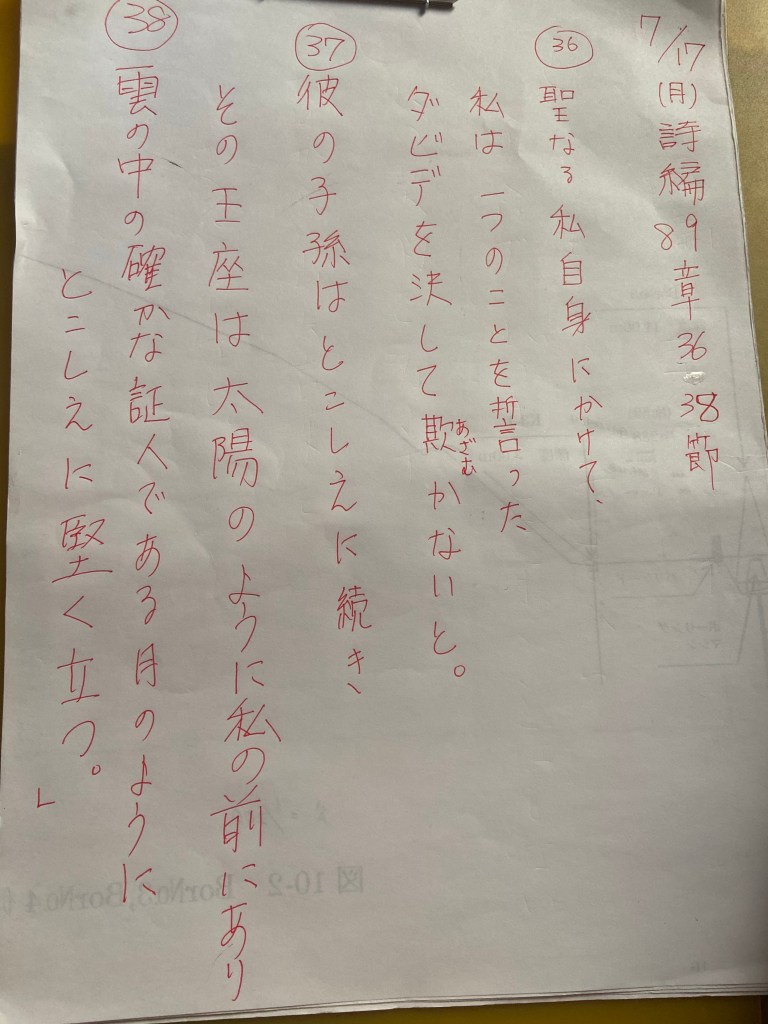 7/17(月)詩編89章36-38節
㊱聖なる私自身にかけて、
私は一つのことを誓った
ダビデを決して欺かないと。
あざむ
㊲彼の子孫はとこしえに続き、
その王座は太陽のように私の前にあり
㊳雲の中の確かな証人である月のように
とこしえに堅く立つ。」
図10-2 BorNo.3,BorNo.4